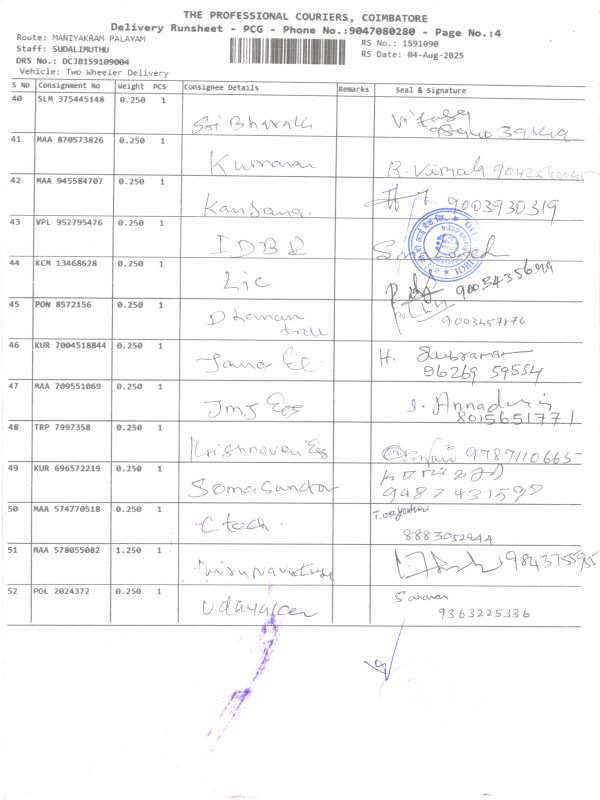 THE PROFESSIONAL COURIERS, COIMBATORE
Delivery Runsheet - PCG - Phone No.:9047080280 - Page No.:4
Route: MANIYAKRAM PALAYAM
RS No.: 1591090
Staff: SUDALIMUTHU
RS Date: 04-Aug-2025
DRS No.: DCJB159109004
Vehicle: Two Wheeler Delivery
S No Consignment No Weight PCS Consignee Details Remarks Seal & Signature
40 SLM 375445148 0.250 1
Sri Bharath
41 MAA 870573826 0.250 1
Kumaran R. Vimala
42 MAA 945584707 0.250 1
Kandana. 9003930319
43 VPL 952795476 0.250 1
IDBI
44 KCM 13468628 0.250 1
Lic 9003435699
45 PON 8572156 0.250 1
Dhanan
9003457876
46 KUR 7004518844 0.250 1
Jana H. Subraman
96269 59554
47 MAA 709551069 0.250 1
Jmj S. Annadurai
8015651771
48 TRP 7997358 0.250 1
Krishnaveni 9787110665
49 KUR 696572219 0.250 1
Somasundar 9487431598
50 MAA 574770518 0.250 1
C tech.
8883052944
51 MAA 578055082 1.250 1
9843755955
52 POL 2024372 0.250 1
Udayakumar Saravan
9363225336